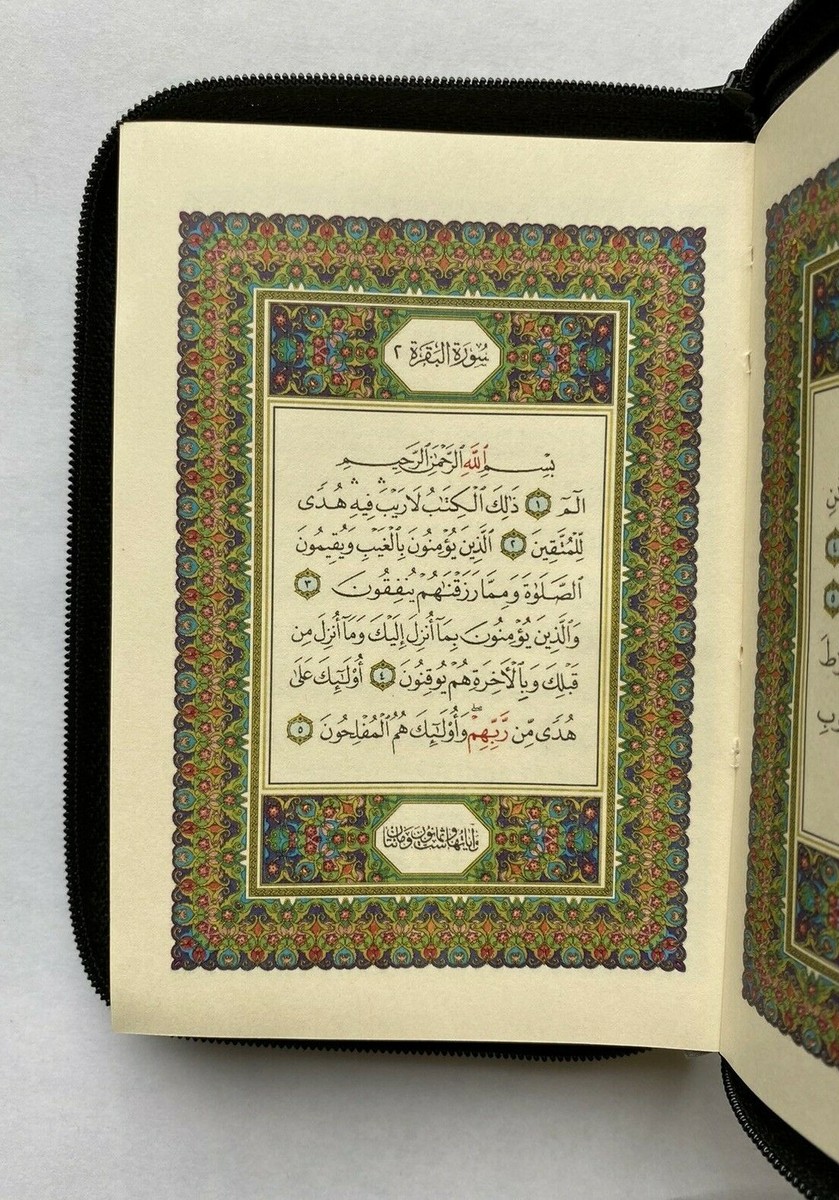 سُورَةُ البَقَرَةِ ٢
بِسْمِ ٱللَّهِ ٱلرَّحْمَٰنِ ٱلرَّحِيمِ
الٓمٓ ١ ذَٰلِكَ ٱلْكِتَٰبُ لَا رَيْبَ ۛ فِيهِ ۛ هُدًى
لِّلْمُتَّقِينَ ٢ ٱلَّذِينَ يُؤْمِنُونَ بِٱلْغَيْبِ وَيُقِيمُونَ
ٱلصَّلَوٰةَ وَمِمَّا رَزَقْنَٰهُمْ يُنفِقُونَ ٣
وَٱلَّذِينَ يُؤْمِنُونَ بِمَآ أُنزِلَ إِلَيْكَ وَمَآ أُنزِلَ مِن
قَبْلِكَ وَبِٱلْءَاخِرَةِ هُمْ يُوقِنُونَ ٤ أُو۟لَٰٓئِكَ عَلَىٰ
هُدًى مِّن رَّبِّهِمْ ۖ وَأُو۟لَٰٓئِكَ هُمُ ٱلْمُفْلِحُونَ ٥
وآياتها ست وثمانون ومائتان